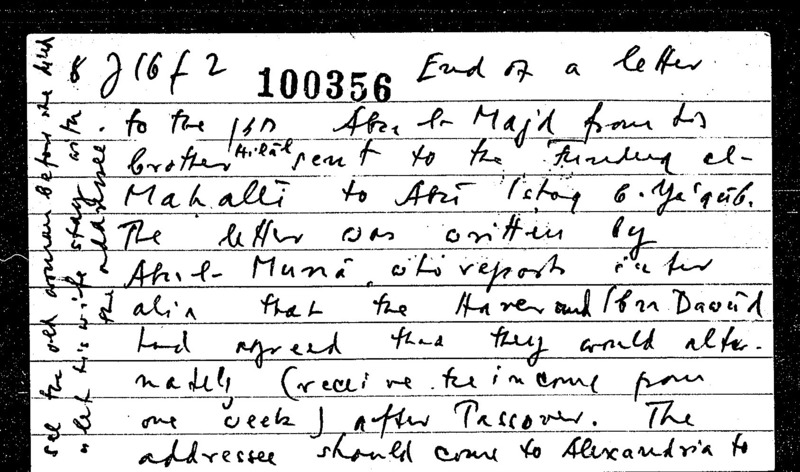 J 16 f 2 100356 End of a letter
to the חזן Abu l-Majd from his
brother Hilāl sent to the Funduq al-
Mahallī to Abū Isḥaq b. Ya'qūb.
The letter was written by
Abu l-Munā, who reports inter
alia that the Haver and Ibn Dawūd
had agreed that they would alter-
nately (receive the income from
one week) after Passover. The
addressee should come to Alexandria to
see the old woman before she died
& let his wife stay with
the addressee.